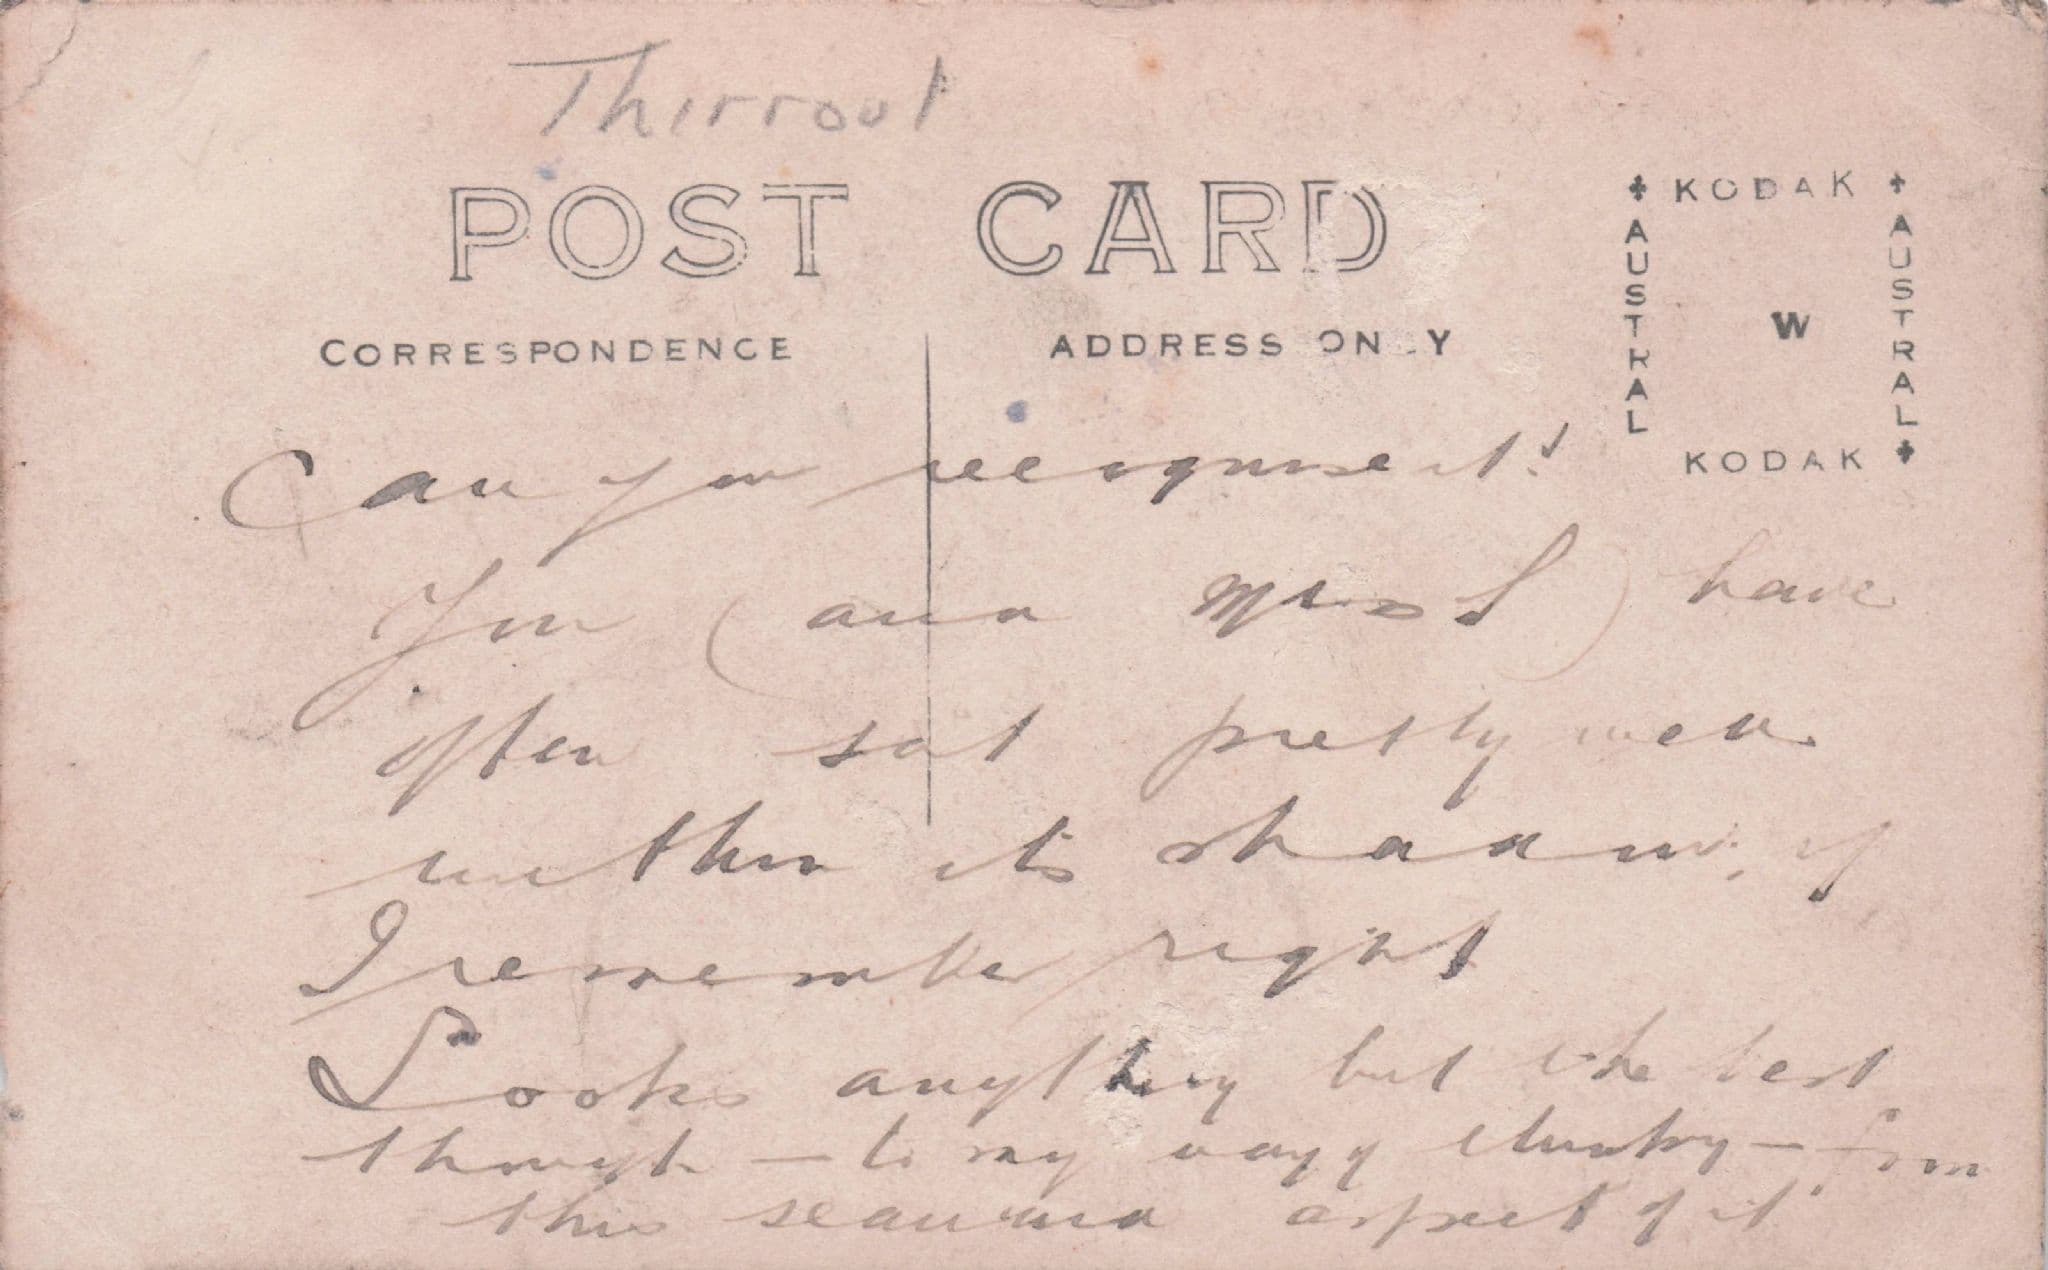 Thirroul
POST CARD
CORRESPONDENCE
ADDRESS ONLY
KODAK
AUSTRAL
AUSTRAL
W
KODAK
Can you recognise it?
You (and Mrs S) have
often sat pretty well
within its shadow, if
I remember right
Looks anything but the best
though — to my way of thinking — from
this seaward aspect of it